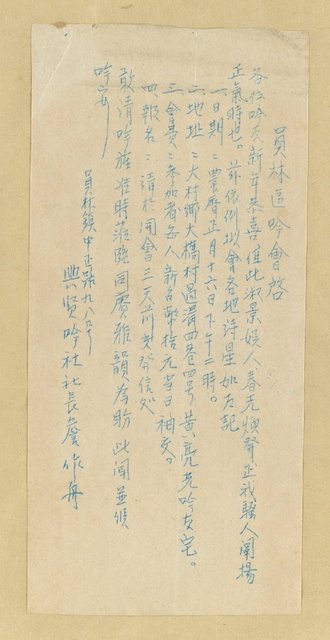 員林區吟會啓
各位吟友新年恭喜值此淑景娛人春光煥發正我騷人闡揚
正氣時也。茲依例以會各地詩星如左記
一、日期：農曆正月十六日下午二時。
二、地址：大村鄉大橋村過溝四巷四号黃亮光吟友宅。
三、會費：參加者每人新台幣拾元當日袖交。
四、報名：請於開會三天前
敢請吟旌准時蒞臨同賡雅韻為盼此聞並候
吟安
員林鎮中正路九八号
興賢吟社社長詹作舟